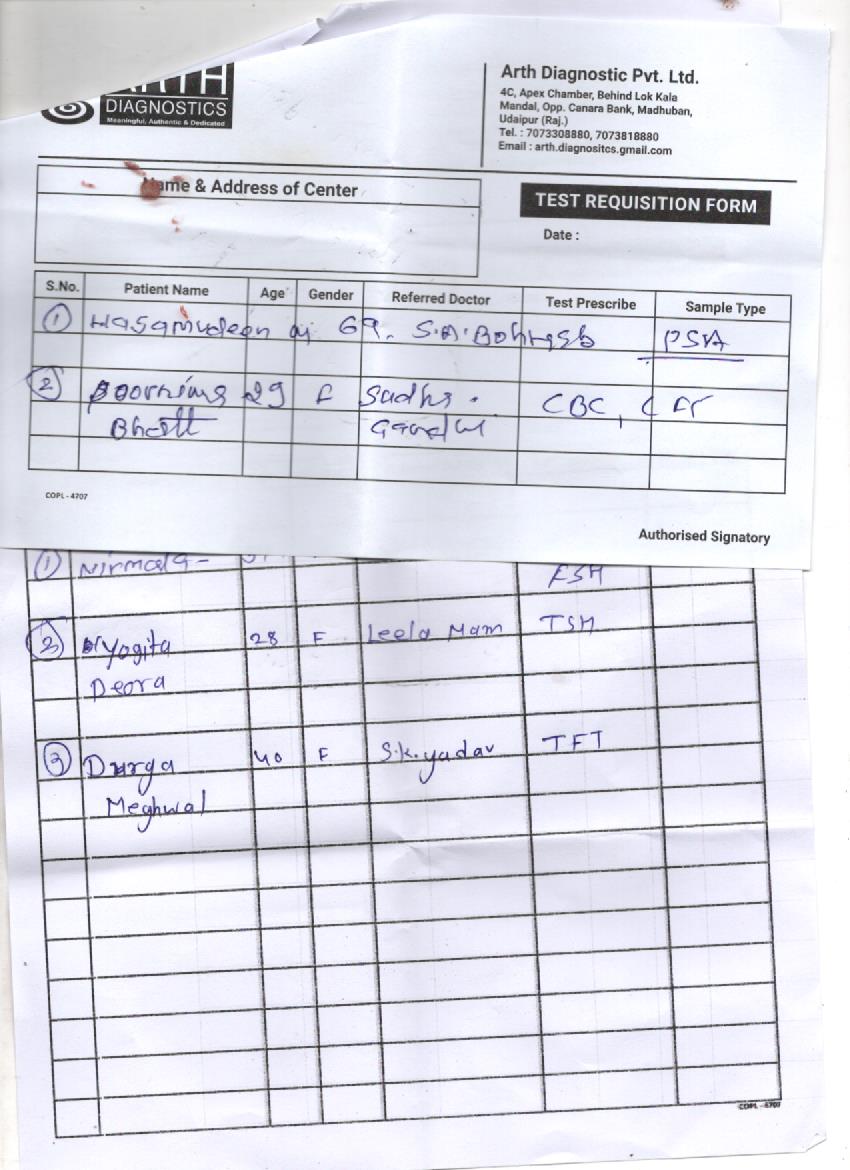 ARTH
DIAGNOSTICS
Meaningful, Authentic & Dedicated
Arth Diagnostic Pvt. Ltd.
4C, Apex Chamber, Behind Lok Kala
Mandal, Opp. Canara Bank, Madhuban,
Udaipur (Raj.)
Tel. : 7073308880, 7073818880
Email : arth.diagnositcs.gmail.com
Name & Address of Center
TEST REQUISITION FORM
Date :
S.No. Patient Name Age Gender Referred Doctor Test Prescribe Sample Type
1 Hasamudeen 69 S.A. PSA
2 Poornima 29 F Sadhs. CBC,
Bhatt
COPL - 4707
Authorised Signatory
1 Nirmala -
FSH
2 Yogita 28 F Leela Mam TSH
Deora
3 Durga 40 F S.K. yadav TFT
Meghwal
COPL - 4707